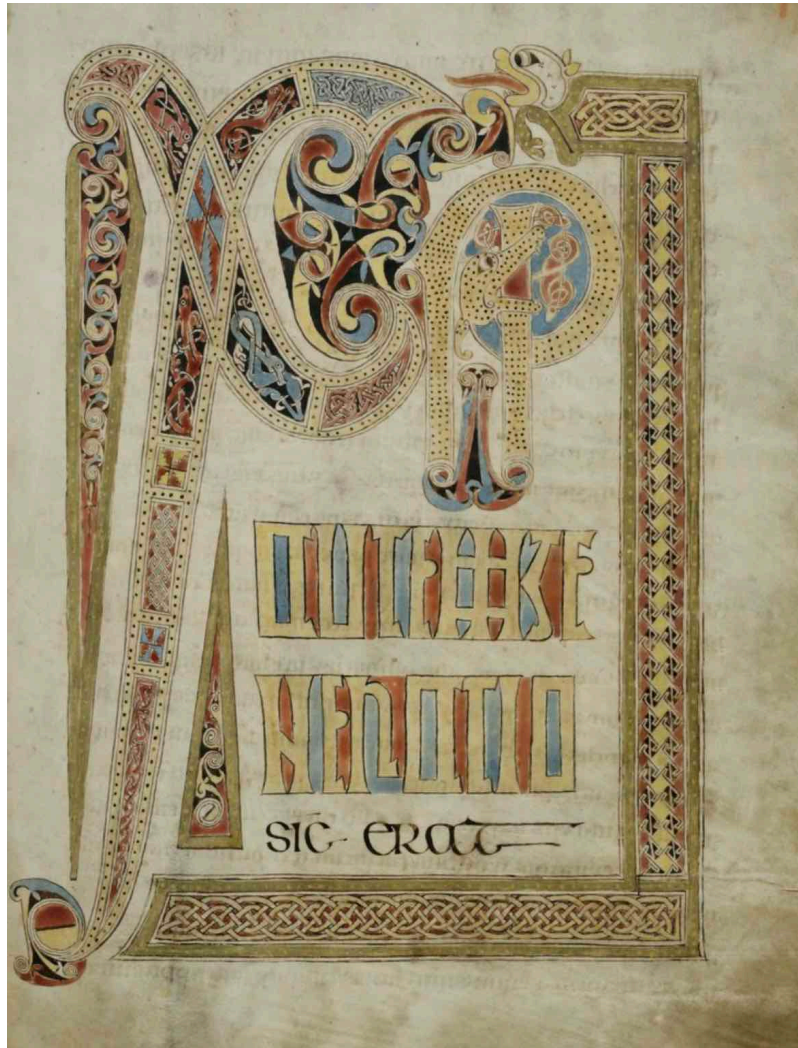 XPI
AUTEM GE
NERATIO
sic erat